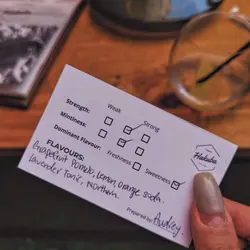 Weak
Strength: Strong
Mintiness:
Dominant Flavour:
Freshness Sweetness
FLAVOURS:
Grapefruit Pomelo, Lemon, Orange Soda,
Lavender Tonic, Northern.
Prepared by: Audrey